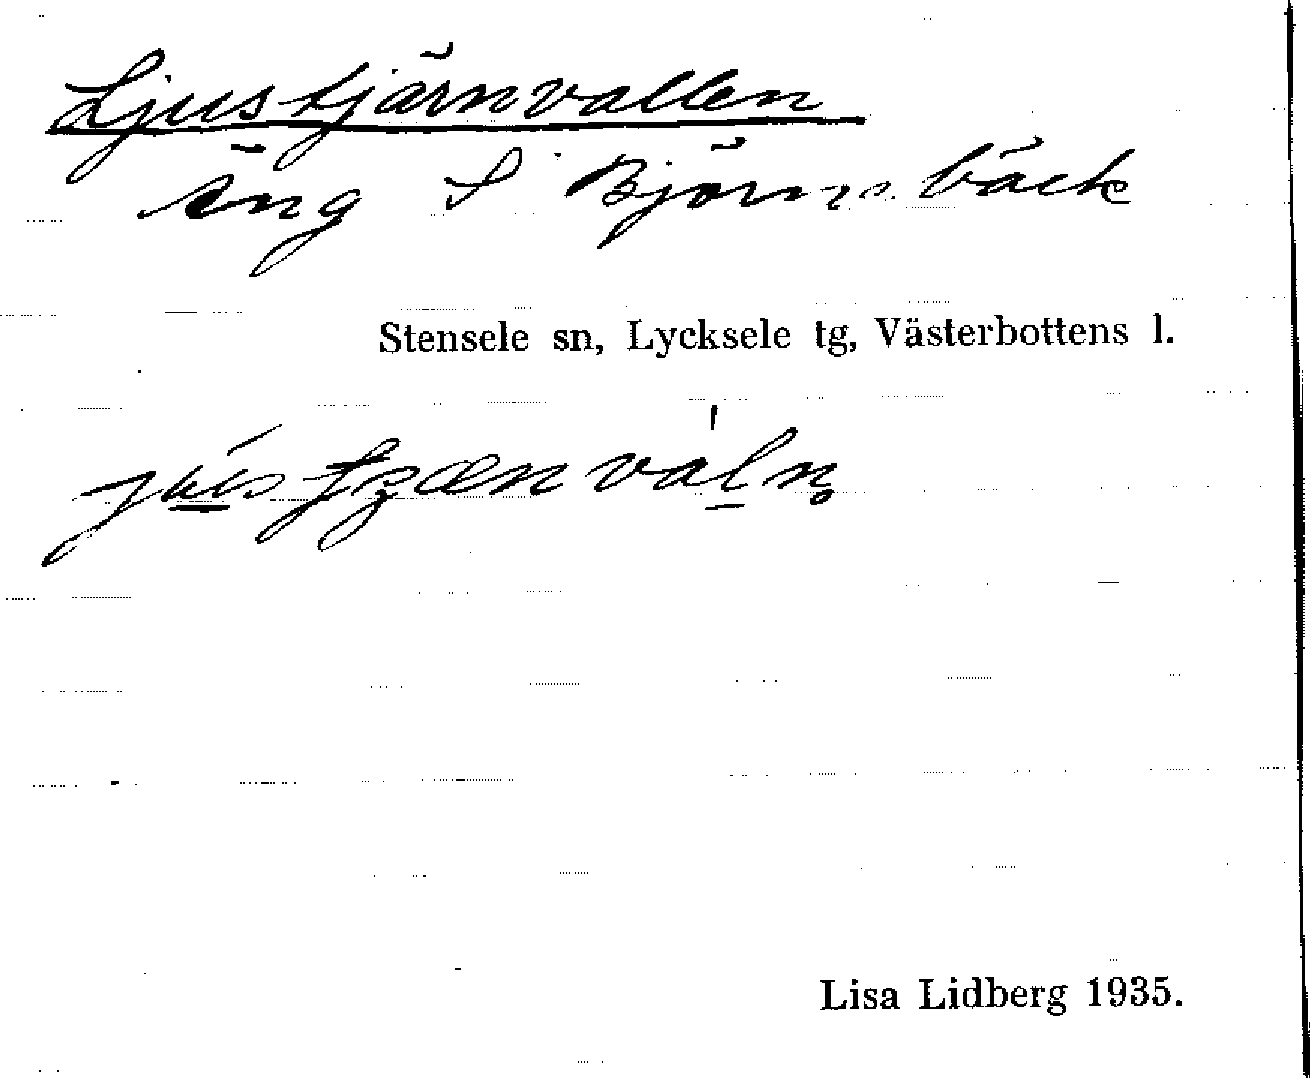 Ljustjärnvallen
äng S Björnbäck
Stensele sn, Lycksele tg, Västerbottens l.
Lisa Lidberg 1935.